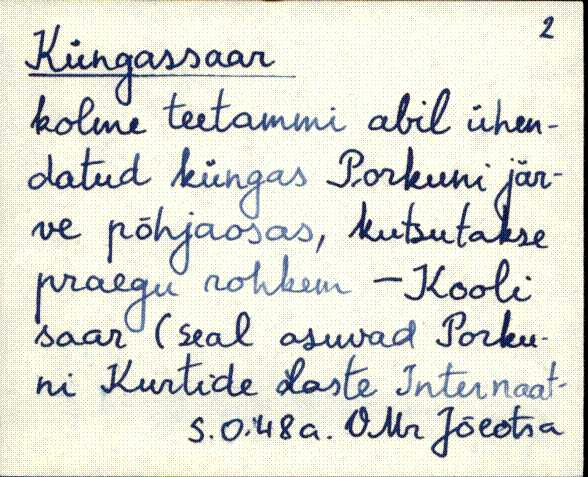 2
Küngassaar
kolme teetammi abil ühen-
datud küngas Porkuni jär-
ve põhjaosas, kutsutakse
praegu rohkem – Kooli
saar (seal asuvad Porku-
ni Kurtide laste Internaat-
S.O.48a. VMr Jõeotsa